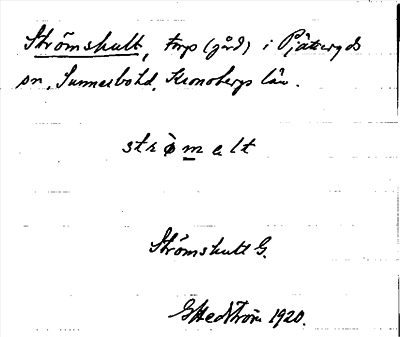 Strömshult, torp (gård) i Pjätteryds
sn, Sunnerbo hd, Kronobergs län.
strò̤m ə lt
Strömshult G.
G Hedström 1920.